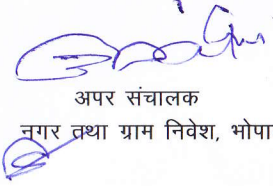 अपर संचालक
नगर तथा ग्राम निवेश, भोपा